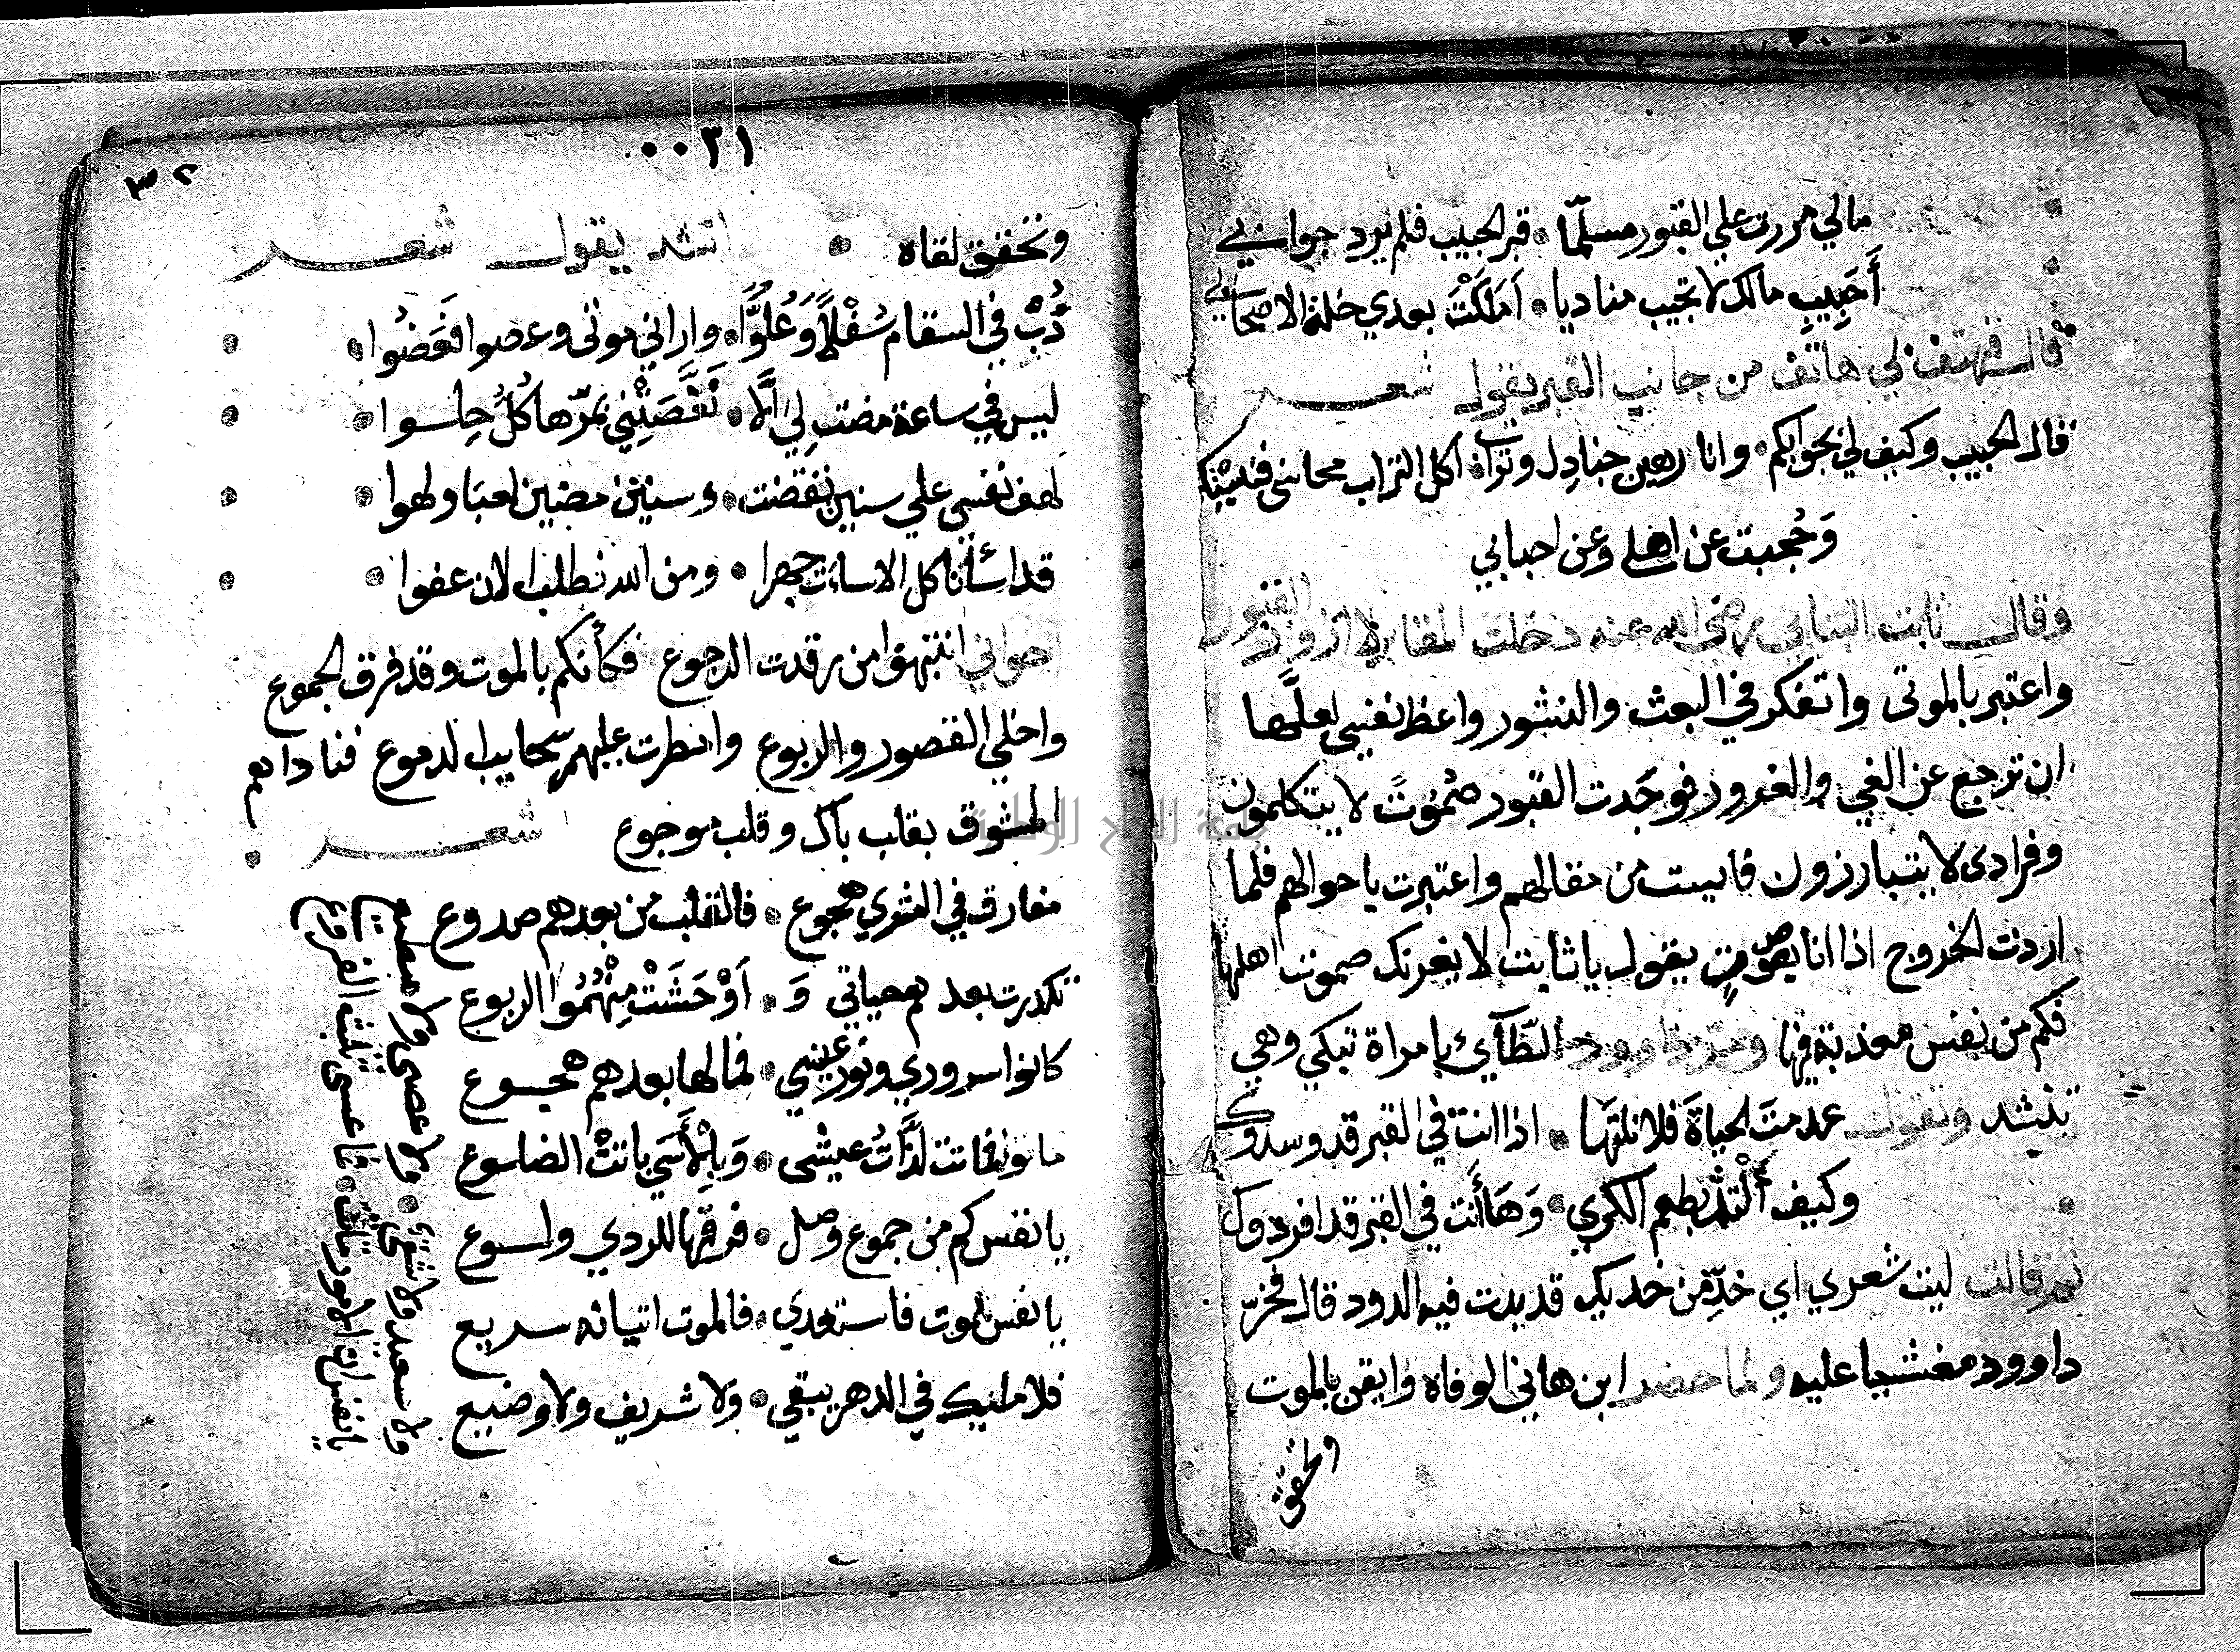 مالي مررت علي القبور مسلّما • قبر الحبيب فلم يرد جوابي
أَحَبِيبِ مالك لا تجيب مناديا • اَمَلَكْتَ بعدي خلة الاصحابي
قال فهتف لي هاتف من جانب القبر يقول شعر
قال الحبيب وكيف لي بجوابكم • وانا رهين جنادل وتراب • اكل التراب محاسني فنسيتكم
وَحُجبت عن اهلي وعن احبابي
وقال ثابت البناني رضي الله عنه دخلت المقابر لازور القبور
واعتبر بالموتى واتفكر في البعث والنشور واعظ نفسي لعلّها
ان ترجع عن الغي والغرور فوجَدت القبور صُموتً لا يتكلمون
وفرادى لا يتبارزون فايست من مقالهم واعتبرت باحوالهم فلما
اردت الخروج اذا انا بصوتٍ يقول يا ثابت لا يغرنك صموت اهلها
فكم من نفس معذبة فيها ومر داوود الطّآئ بامراة تبكي وهي
تنشد وتقول عدمتَ الحياةَ فلا نلتَها • اذا انت في القبر قد وسدوك
وكيف أَلْتَذُّ بطعم الكري • وَهَا أَنت في القبر قد افردوك
ثم قالت ليت شعري اي خدّ من خديك قد بدت فيه الدود قال فخرّ
داوود مغشيا عليه ولما حضر ابن هاني الوفاه وايقن بالموت
وتحقق
٠٠٣١
٣٢
وتحقق لقاه • انشد يقول شعر
دُبَّ في السقام سُفْلاً وَعُلُوًّا • واراني موتى وعضوا فَعَضُوا •
ليس في ساعة مضت لي اَلَّا • نَغَّصَتْنِي بمرّها كُلَّ حِلسوا •
لهف نفسي علي سنين تقضت • وسنين مضين لعبَا ولهوا •
قد اسأنا كل الاساءت جهرا • ومن الله نطلب لان عفوا •
اخواني انتبهوا من رقدت الدجوع فكأنكم بالموت وقد فرق الجموع
واخلي القصور والربوع وامطرت عليهم سحايب الدموع فناداهم
المشوق بقلب باك وقلب موجوع شعر
مفارق في الثري هجوع • فالقلب من بعدهم صدوع
تكدرت بعدهم حياتي وَ • اَوْحَشَتْ مِنْهُمُوا الربوع
كانوا سروري ونور عيني • فما لها بعدهم هجوع
ماتوا فماتت لذّاتُ عيشي • وَبِالْأَسَي باتتْ الضلوع
يا نفس كم من جموع وصل • فرقها للردي ولسوع
يا نفس للموت فاستعدي • فالموت اتيانه سريع
فلا مليك في الدهر يبقي • وَلا شريف ولا وضيع
ولا سعيد ولا شقيّ • ولا عصيّ ولا مطيع
يا نفس ان الامور تاتي • فما عسى تلبث الفروع